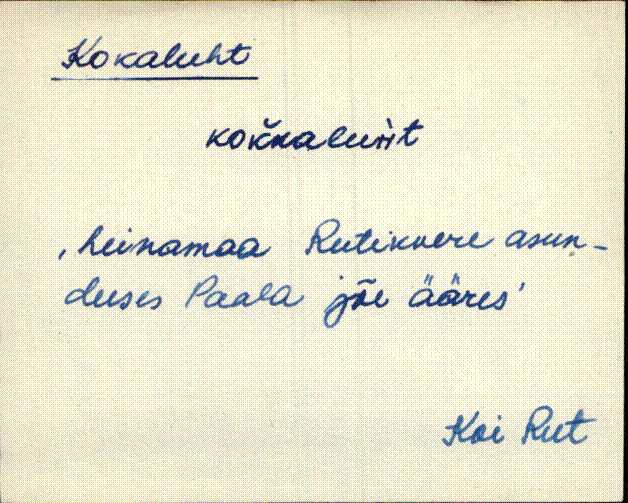 Kokaluht
kok̆kaluʜt
‚heinamaa Rutikvere asun-
duses Paala jõe ääres'
Koi Rut